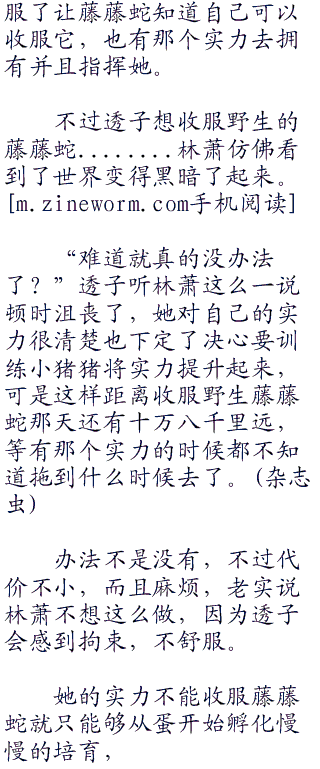 服了让藤藤蛇知道自己可以
收服它，也有那个实力去拥
有并且指挥她。
不过透子想收服野生的
藤藤蛇........林萧仿佛看
到了世界变得黑暗了起来。
[m.zineworm.com手机阅读]
“难道就真的没办法
了？”透子听林萧这么一说
顿时沮丧了，她对自己的实
力很清楚也下定了决心要训
练小猪猪将实力提升起来，
可是这样距离收服野生藤藤
蛇那天还有十万八千里远，
等有那个实力的时候都不知
道拖到什么时候去了。(杂志
虫)
办法不是没有，不过代
价不小，而且麻烦，老实说
林萧不想这么做，因为透子
会感到拘束，不舒服。
她的实力不能收服藤藤
蛇就只能够从蛋开始孵化慢
慢的培育，